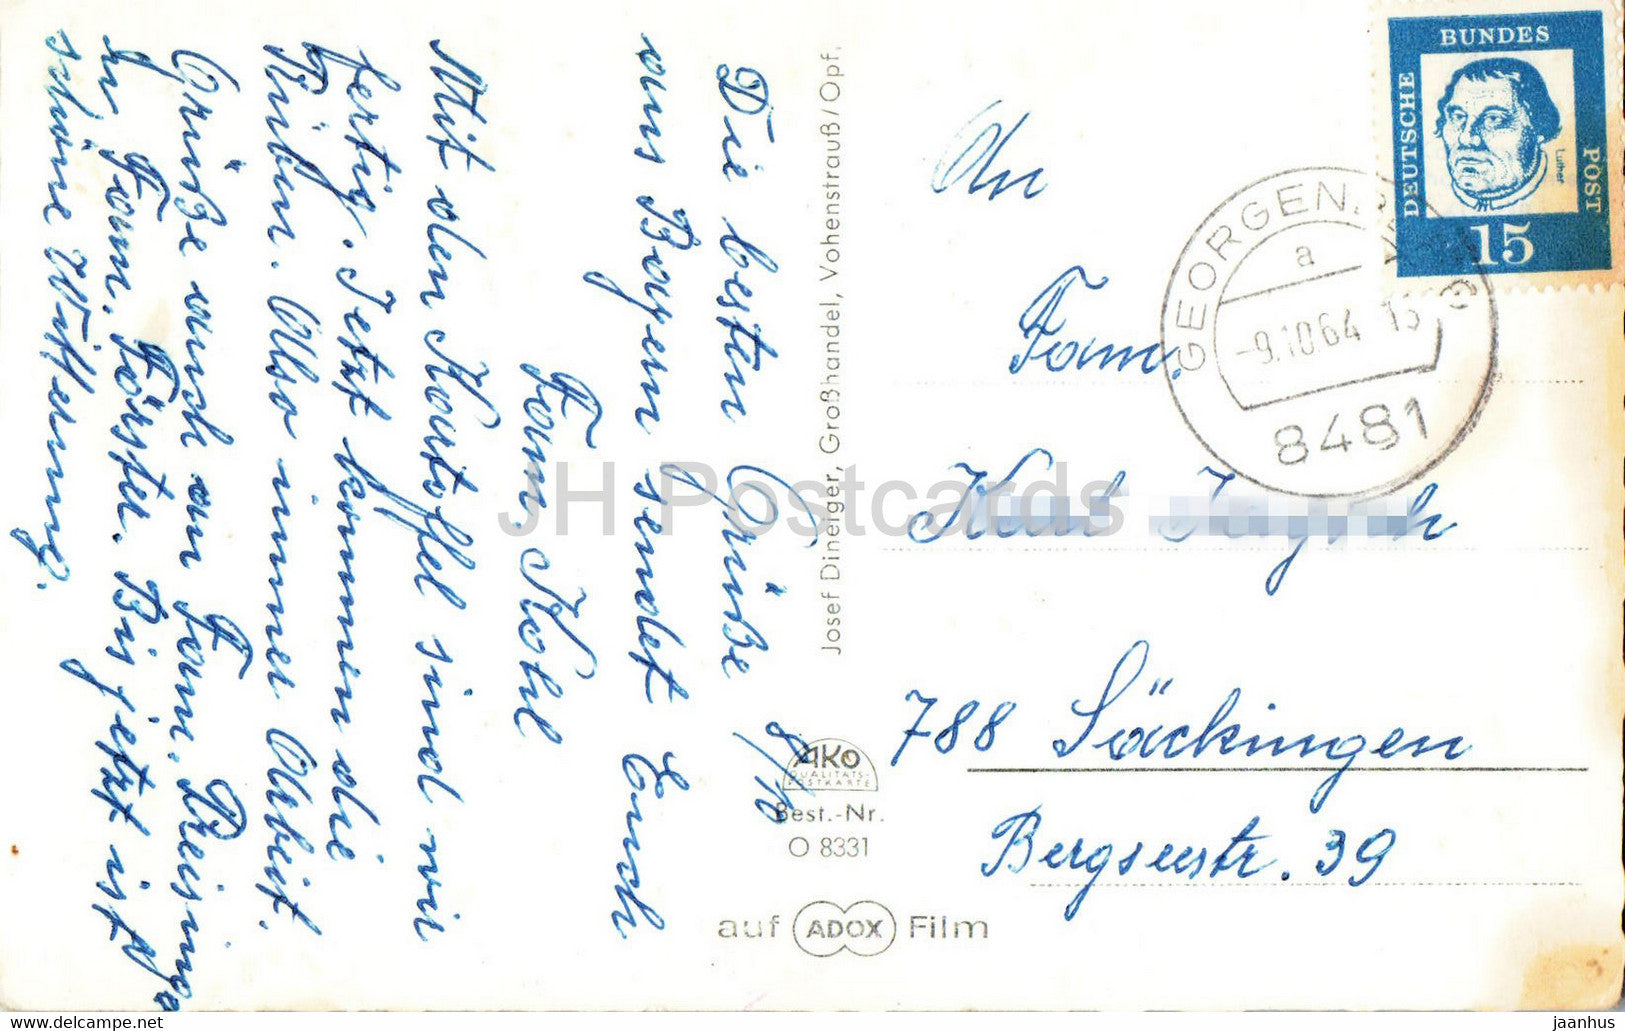 Die besten Grüße
aus Bayern sendet Euch
Fam. Kohl 8/10
Mit den Kartoffel sind wir
fertig. Jetzt kommen die
Rüben. Also immer Arbeit.
Grüße auch an Fam. Preising
u. Fam. Förster. Bis jetzt ist
schöne Witterung.
Josef Dinerger, Großhandel, Vohenstrauß/Opf.
AKO
QUALITÄTS-
POSTKARTE
Best.-Nr.
O 8331
auf ADOX Film
DEUTSCHE BUNDES POST
Luther
15
GEORGEN
a
-9.10.64
8481
An
Fam.
788 Säckingen
Bergseestr. 39
JH Postcards
jaanhus